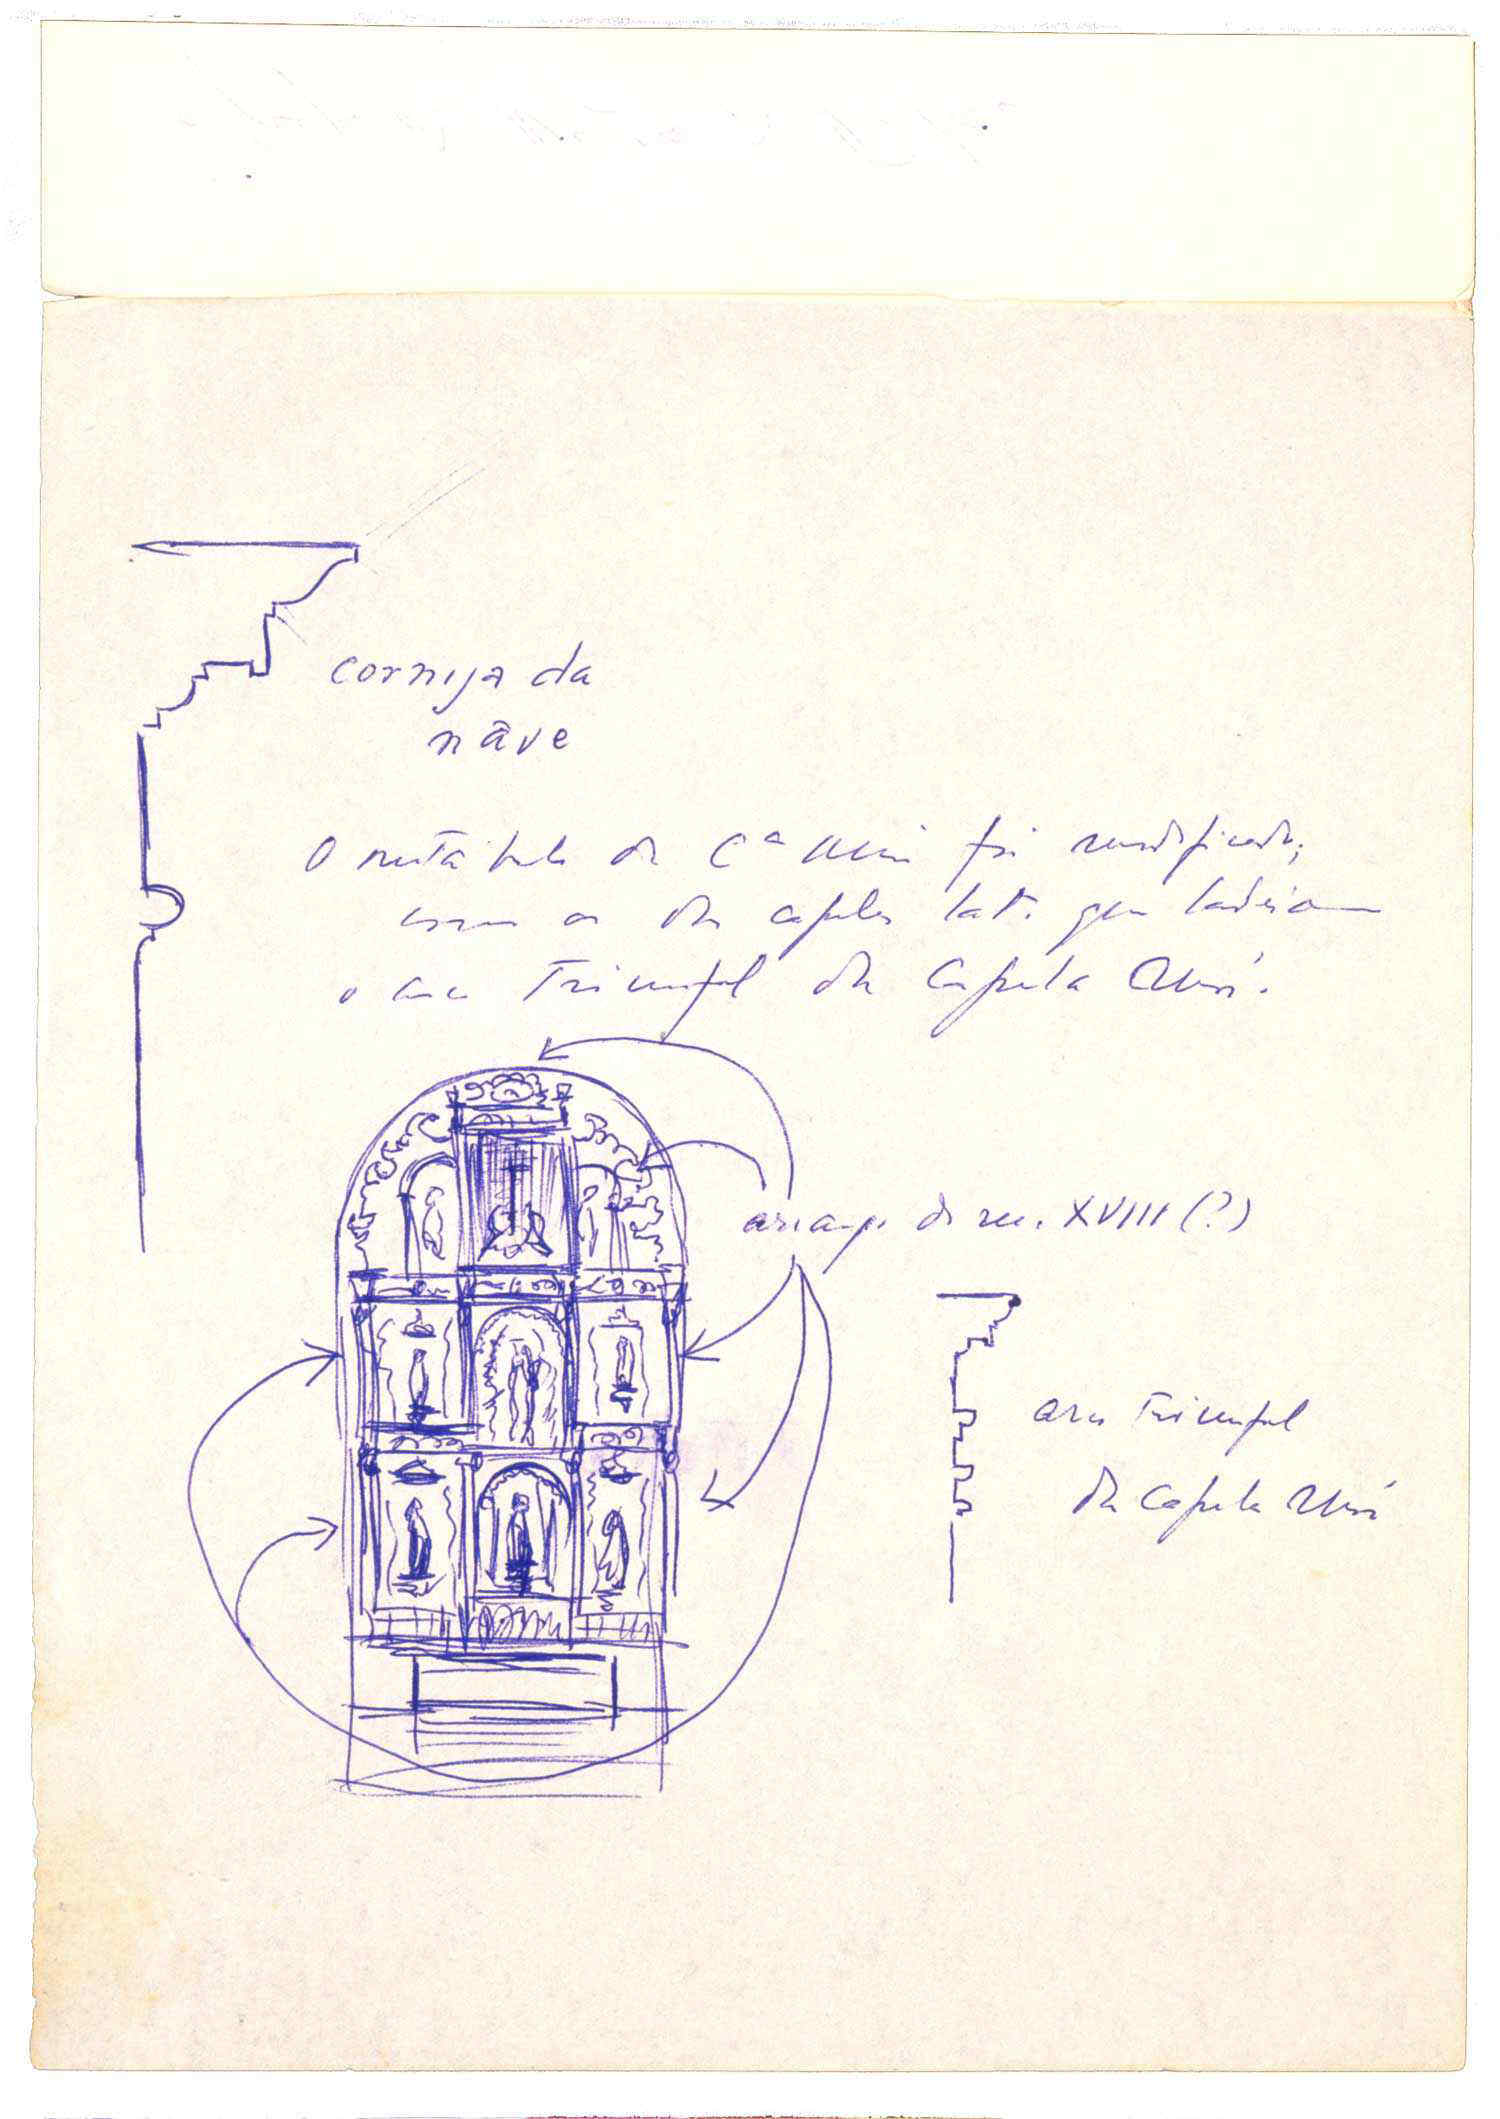 cornija da
nave
O retábulo da Cª Mór foi modificado,
como os das capelas lat. que ladeiam
o arco Triunfal da Capela Mór.
arranjo do séc. XVIII (?)
arco Triunfal
da Capela Mór